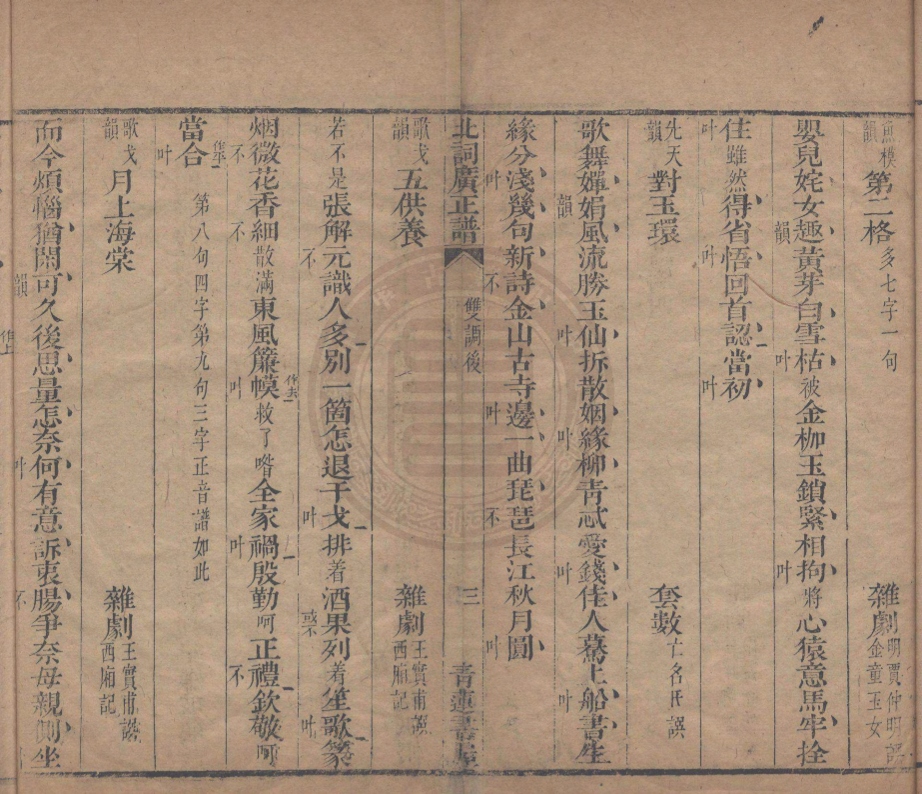 魚模韻 第二格 多七字一句 雜劇 明賈仲明譔 金童玉女
嬰兒姹女趣韻黃芽白雪枯叶被金枷玉鎖緊相拘叶將心猿意馬牢拴
住叶雖然得省悟叶回首認當初叶
先天韻 對玉環 套數 亡名氏譔
歌舞嬋娟韻風流勝玉仙叶拆散姻緣叶柳青忒愛錢叶佳人驀上船叶書生
緣分淺叶幾句新詩不金山古寺邊叶一曲琵琶不長江秋月圓叶
北詞廣正譜 雙調後 三 青蓮書屋
歌戈韻 五供養 雜劇 王實甫譔 西廂記
若不是張解元識人多不別一箇怎退干戈叶排着酒果或不列着笙歌叶篆
烟微不花香細不散滿東風簾幙叶作去救了喒全家禍叶殷勤呵正禮不欽敬呵
當合叶作平 第八句四字第九句三字正音譜如此
歌戈韻 月上海棠 雜劇 王實甫譔 西廂記
而今煩惱猶閑可韻久後思量怎奈何叶有意訴衷腸不爭奈母親側坐